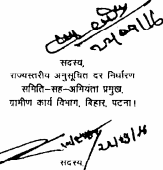 22/09/16
सदस्य,
राज्यस्तरीय अनुसूचित दर निर्धारण
समिति-सह-अभियंता प्रमुख,
ग्रामीण कार्य विभाग, बिहार, पटना।
सदस्य